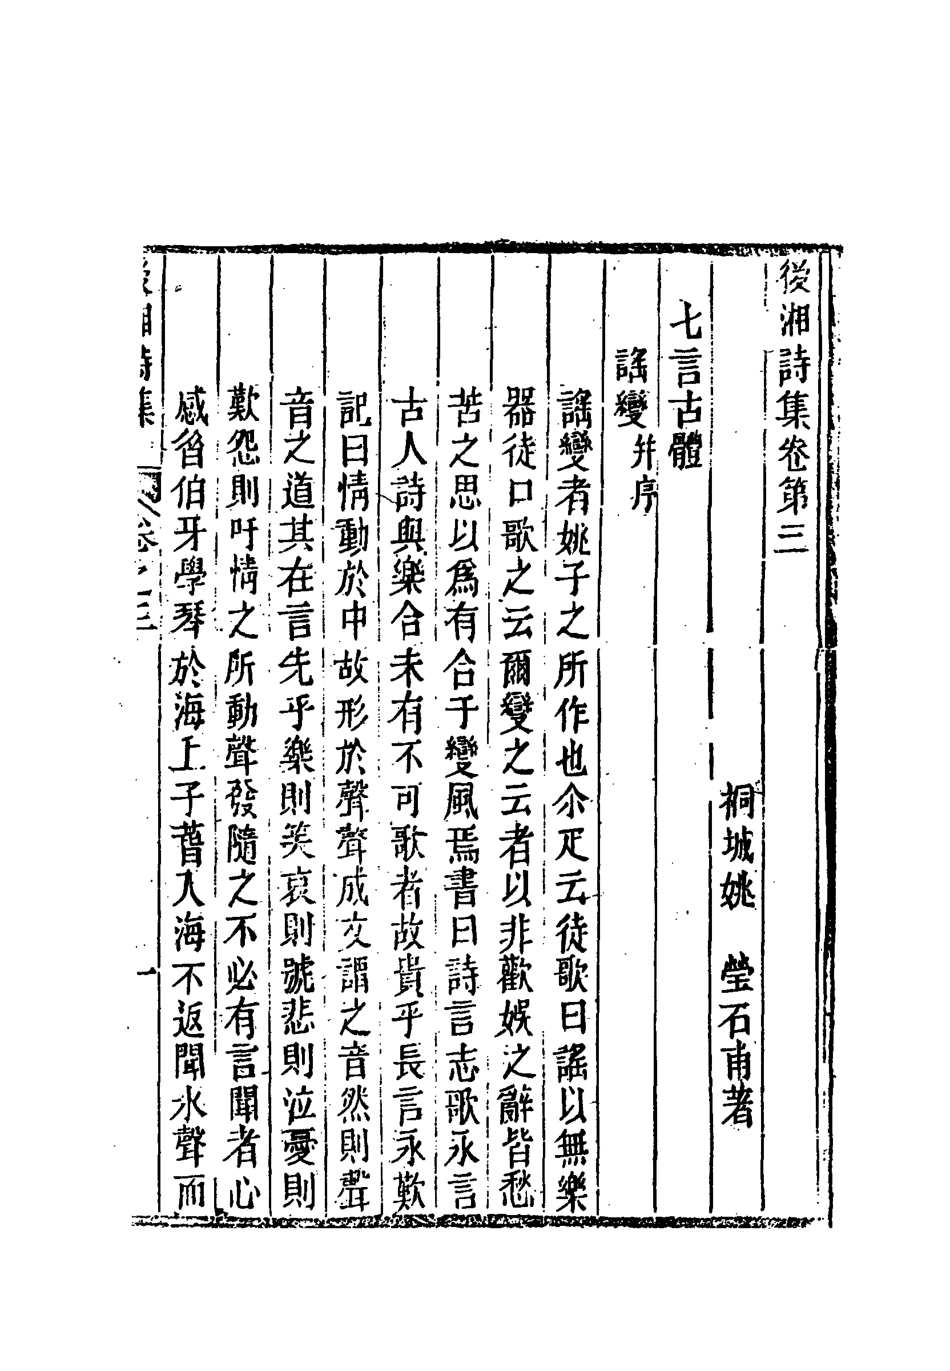 後湘詩集卷第三
桐城姚　瑩石甫著
七言古體
謠變并序
謠變者姚子之所作也尒疋云徒歌曰謠以無樂
器徒口歌之云爾變之云者以非歡娛之辭皆愁
苦之思以爲有合于變風焉書曰詩言志歌永言
古人詩與樂合未有不可歌者故貴乎長言永歎
記曰情動於中故形於聲聲成文謂之音然則聲
音之道其在言先乎樂則笑哀則號悲則泣憂則
歎怨則吁情之所動聲發隨之不必有言聞者心
感昝伯牙學琴於海上子蒈入海不返聞水聲而
後湘詩集　卷之三　一